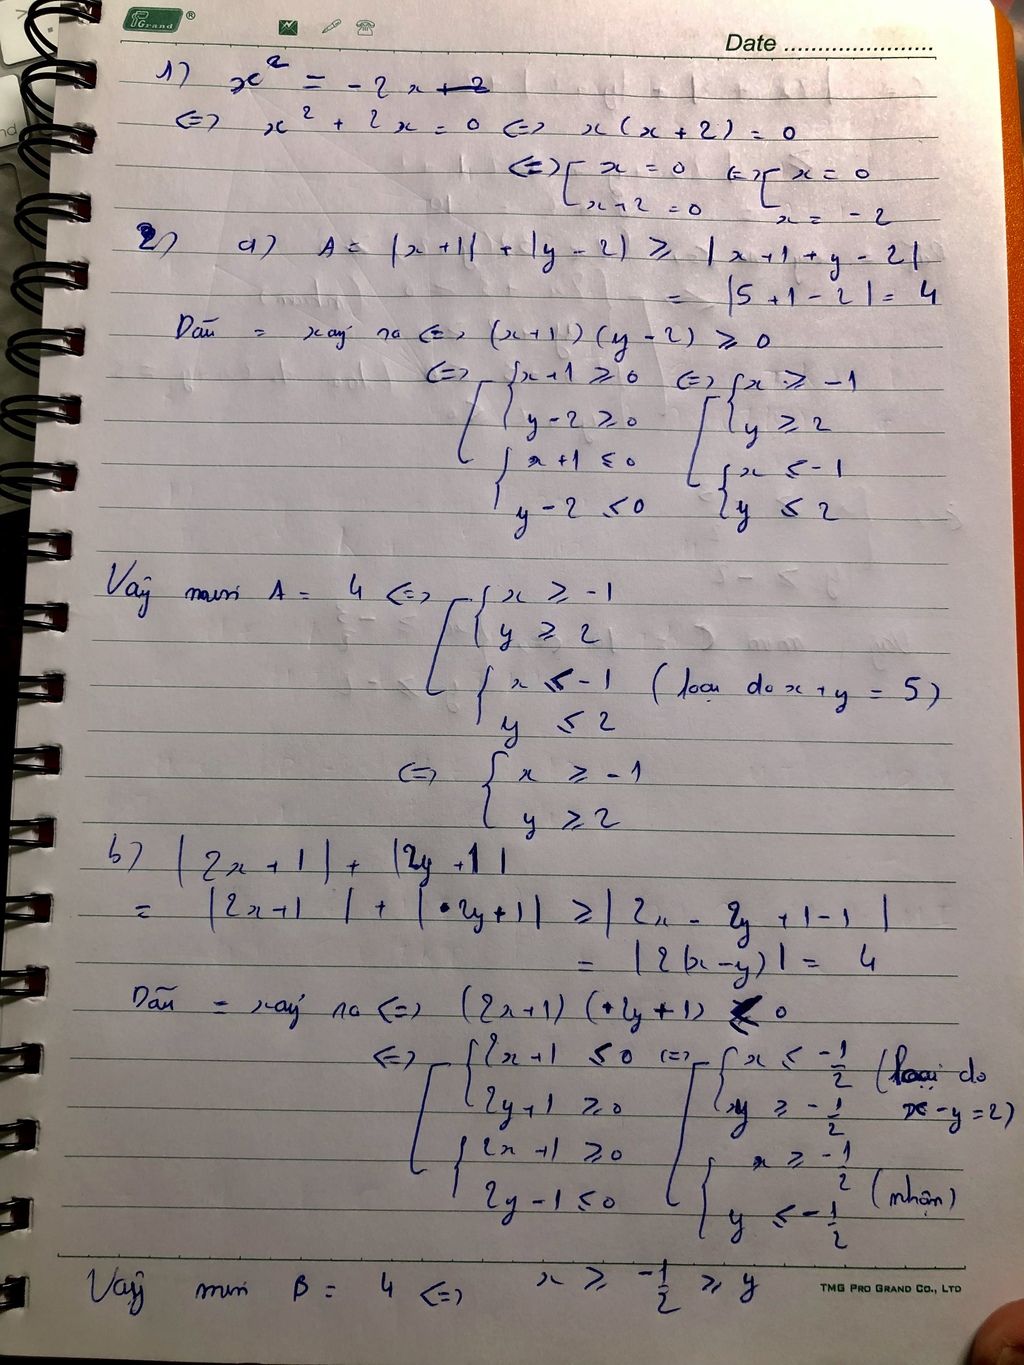 Grand ®
Date ........................
1) x² = -2x
<=> x² + 2x = 0 <=> x(x+2) = 0
<=> [ x = 0 <=> [ x = 0
x+2 = 0 x = -2
2) a) A = |x+1| + |y-2| ≥ |x+1+y-2|
= |5+1-2| = 4
Dấu = xảy ra <=> (x+1)(y-2) ≥ 0
<=> [ { x+1 ≥ 0 <=> [ { x ≥ -1
y-2 ≥ 0 y ≥ 2
{ x+1 ≤ 0 { x ≤ -1
y-2 ≤ 0 y ≤ 2
Vậy min A = 4 <=> [ { x ≥ -1
y ≥ 2
{ x ≤ -1 (loại do x+y = 5)
y ≤ 2
<=> { x ≥ -1
y ≥ 2
b) |2x+1| + |2y+1|
= |2x+1| + |2y+1| ≥ |2x - 2y + 1-1|
= |2(x-y)| = 4
Dấu = xảy ra <=> (2x+1)(2y+1) ≤ 0
<=> [ { 2x+1 ≤ 0 <=> [ { x ≤ -1/2 (loại do
2y+1 ≥ 0 y ≥ -1/2 x-y=2)
{ 2x+1 ≥ 0 { x ≥ -1/2
2y-1 ≤ 0 y ≤ -1/2 (nhận)
Vậy min B = 4 <=> x ≥ -1/2 ≥ y
TMG PRO GRAND CO., LTD